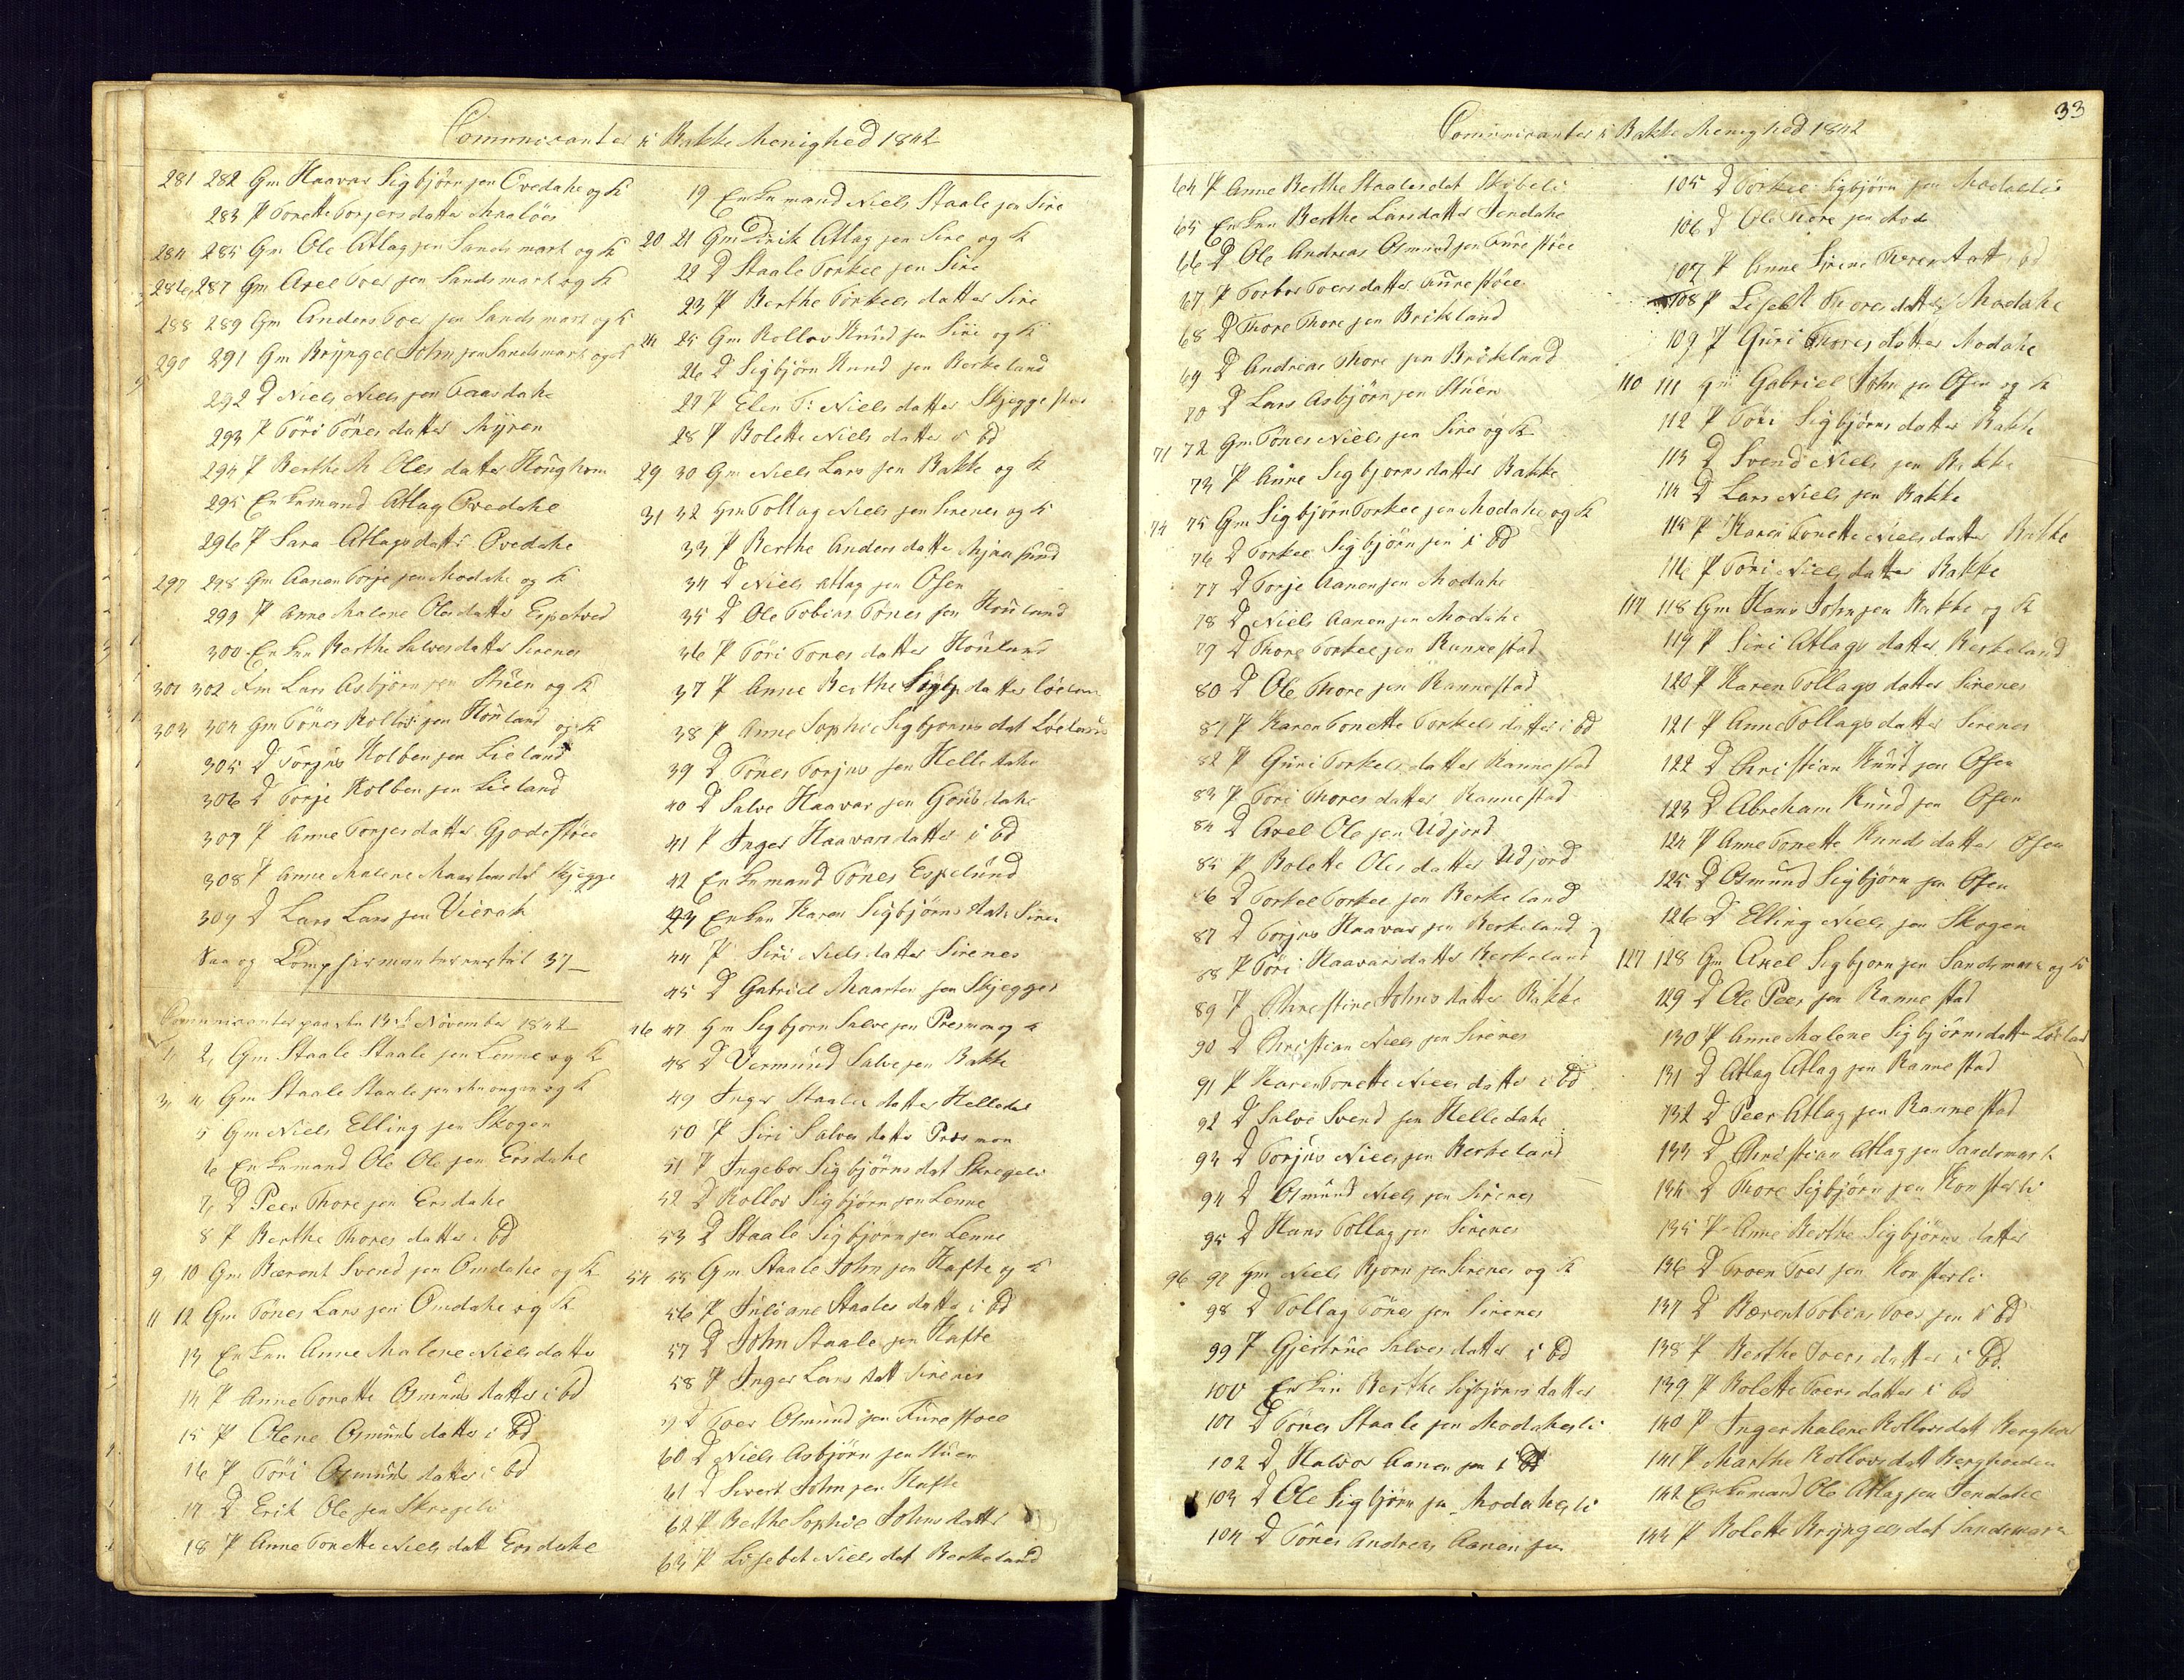 Communicanter i Bakke Menighed 1842
281 282 Gm Haavar Sigbjørn sen Ovedahe og K
283 P Tonette Torjers datter Maaløes
284 285 Gm Ole Atlag sen Sandsmark og K
286, 287 Gm Axel Toer sen Sandsmark og K
288 289 Gm Anders Toer sen Sandsmark og K
290 291 Gm Bryngel John sen Sandsmark og K
292 D Niels Niels sen Faasdahe
293 P Töri Tönes datter Myren
294 P Berthe M Oles datter Houghom
295 Enkemand Atlag Ovedahe
296 P Sara Atlags datt: Ovedahe
297 298 Gm Aanen Torje sen Modahe og K
299 P Anne Malene Oles datter Espetved
300 Enken Berthe Salves datter Sirenes
301 302 Gm Lars Asbjörn sen Stuen og K
303 304 Gm Tönes Rollos: sen Houland og K
305 D Torjus Kolben sen Lieland
306 D Torje Kolben sen Lieland
307 P Anne Torjes datter Gjodestöee
308 P Anne Malene Maartens dat Skjegge
309 D Lars Lars sen Vierak
37
Communicanter paa den 13de November 1842
1, 2, Gm Staale Staale sen Lenne og K
3, 4, Gm Staale Staale sen og K
5 Gm Niels Elling sen Skogen
6 Enkemand Ole Ole sen Ersdahe
7, D Peer Thore sen Ersdahe
8 P Berthe Thores datter i bd
9, 10 Gm Bærent Svend sen Omdahe og K
11 12 Gm Tönes Lars sen Omdahe og K
13 Enken Anne Malene Niels datter
14 P Anne Tonette Osmunds datter i bd
15 P Olene Osmunds datter i bd
16 P Töri Osmunds datter i bd
17 D Erik Ole sen Skregeli
18 P Anne Tonette Niels datt Ersdahe
19 Enkemand Niels Staale sen Sire
20 21 Gm Dirik Atlag sen Sire og K
22 D Staale Torkel sen Sire
23 P Berthe Torkels datter Sire
24 25 Gm Rollov Knud sen Sire og K
26 D Sigbjörn Knud sen Berkeland
27 P Elen T: Niels datter Skjeggestad
28 P Bolette Niels datter i bd
29 30 Gm Niels Lars sen Bakke og K
31 32 Gm Tollag Niels sen Sirenes og K
33 P Berthe Anders datter
34 D Niels Atlag sen Osen
35 D Ole Tobias Tönes sen Houland
36 P Töri Tones datter Houland
37 P Anne Berthe Sigbj datter Löeland
38 P Anne Sophie Sigbjorns dat Löeland
39 D Tönes Torjus sen Helledahe
40 D Salve Haavar sen Gousdahe
41 P Inger Haavars datter i bd
42 Enkemand Tönes Espelund
43 Enken Karen Sigbjörns datt Sirenes
44 P Siri Niels datter Sirenes
45 D Gabriel Maarten sen Skjegges
46 47 Gm Sigbjorn Salve sen Presmon og K
48 D Vermund Salve sen Bakke
49 Inger Staales datter Helledal
50 P Siri Salves datter Præsmon
51 P Ingebor Sigbjörns dat Skregeli
52 D Rollov Sigbjörn sen Lenne
53 D Staale Sigbjörn sen Lenne
54 55 Gm Staale John sen Hafte og K
56 P Juliane Staales datter i bd
57 D John Staale sen Hafte
58 P Inger Lars datt Sirenes
59 D Toer Osmund sen Furestöee
60 D Niels Asbjörn sen Stuen
61 D Sivert John sen Hafte
62 P Berthe Sophie Johns datter
63 P Lisebet Niels dat Berkeland
33
Communicanter i Bakke Menighed 1842
64 P Anne Berthe Staales dat Skibeli
65 Enken Berthe Larsdatter Jendahe
66 D Ole Andreas Osmund sen Furestöee
67 P Torbor Toers datter Furestöee
68 D Thore Thore sen Brikland
69 D Andreas Thore sen Brikeland
70 D Lars Asbjörn sen Stuen
71 72 Gm Tönes Niels sen Sire og K
73 P Anne Sigbjorns datter Bakke
74 75 Gm Sigbjörn Torkel sen Modahe og K
76 D Torkel Sigbjörn sen i bd
77 D Torje Aanen sen Modahe
78 D Niels Aanen sen Modahe
79 D Thore Torkel sen Rannestad
80 D Ole Thore sen Rannestad
81 P Karen Tonette Torkels datter i bd
82 P Guri Torkels datter Rannestad
83 P Töri Thores datter Rannestad
84 D Axel Ole sen Udjord
85 P Bolette Oles datter Udjord
86 D Torkel Torkel sen Berkeland
87 D Torjus Haavar sen Berkeland
88 P Töri Haavars datter Berkeland
89 P Chrestine Johns datter Bakke
90 D Christian Niels sen Sirenes
91 P Karen Tonette Niels datter i bd
92 D Salve Svend sen Helledahe
93 D Torjus Niels sen Berkeland
94 D Osmund Niels sen Sirenes
95 D Hans Tollag sen Sirenes
96 97 Gm Niels Bjorn sen Sirenes og K
98 D Tollag Tönes sen Sirenes
99 P Gjertrue Salves datter i bd
100 Enken Berthe Sigbjörns datter
101 D Tönes Staale sen Modahesli
102 D Halvor Aanen sen i bd
103 D Ole Sigbjörn sen Modahesli
104 D Tönes Andreas Aanen sen
105 D Torkel Sigbjörn sen Modaelis
106 D Ole Thore sen Mode
107 P Anne Sirene Thores datt i bd
108 P Lisebet Thores datter Modahe
109 P Guri Thores datter Modahe
110 111 Gm Gabriel John sen Osen og K
112 P Töri Sigbjörns datter Bakke
113 D Svend Niels sen Bakke
114 D Lars Niels sen Bakke
115 P Karen Tonette Niels datter Bakke
116 P Töri Niels datter Bakke
117 118 Gm Hans John sen Bakke og K
119 P Siri Atlags datter Berkeland
120 P Karen Tollags datter Sirenes
121 P Anne Tollags datter Sirenes
122 D Christian Knud sen Osen
123 D Abreham Knud sen Osen
124 P Anne Tonette Knuds datter Osen
125 D Osmund Sigbjörn sen Osen
126 D Elling Niels sen Skogen
127 128 Gm Axel Sigbjorn sen Sandsmark og K
129 D Ole Peer sen Rannestad
130 P Anne Malene Sigbjörns datter Löeland
131 D Atlag Atlag sen Rannestad
132 D Peer Atlag sen Rannestad
133 D Christian Atlag sen Sandsmark
134 D Thore Sigbjörn sen Konsterli
135 P Anne Berthe Sigbjörns datter
136 D Troen Toer sen Konsterli
137 D Bærent Tobias Toer sen i bd
138 P Berthe Toers datter i bd
139 P Bolette Toers datter i bd
140 P Inger Malene Rollovs datt
141 P Marthe Rollovs datt
142 Enkemand Ole Atlag sen Jendahe
143 P Bolette Bryngels dat Sandsmark